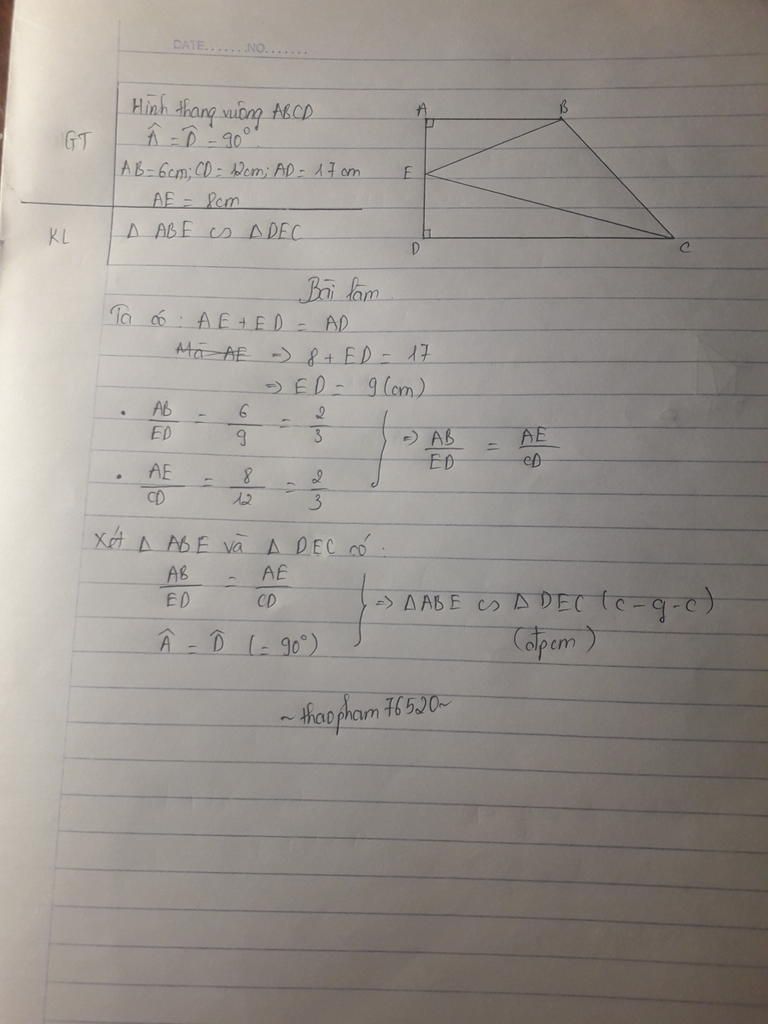 DATE.......NO.......
GT
Hình thang vuông ABCD
Â = D̂ = 90°.
AB = 6cm; CD = 12cm; AD = 17cm
AE = 8cm
KL
Δ ABE ∽ ΔDEC
A
B
E
D
C
Bài làm
Ta có : AE + ED = AD
Mà AE => 8 + ED = 17
=> ED = 9(cm)
• AB/ED = 6/9 = 2/3
• AE/CD = 8/12 = 2/3
} => AB/ED = AE/CD
Xét Δ ABE và Δ DEC có :
AB/ED = AE/CD
Â = D̂ (= 90°)
} => ΔABE ∽ Δ DEC (c-g-c)
(đpcm)
~thaopham76520~